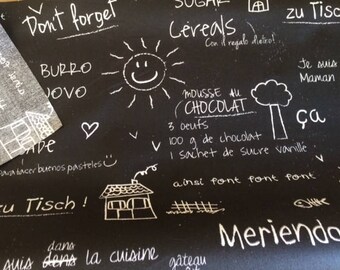 SUGAR
Don't forget
zu Tisch
Céréals
Con il regalo dietro!
BURRO
Je suis
Maman
UOVO
MOUSSE AU
CHOCOLAT
3 oeufs
100 g de chocolat
1 sachet de sucre vanillé
ça
para hacer buenos pasteles
ainsi font font font
zu Tisch !
Meriendo
dans
suis dans la cuisine
gâteau